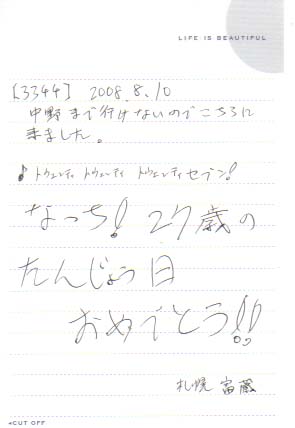 LIFE IS BEAUTIFUL
[3344] 2008.8.10
中野まで行けないのでこちらに
来ました。
♪トゥエンティ トゥエンティ トゥエンティセブン!
なっち! 27歳の
たんじょう日
おめでとう!!
札幌 富蔵
◂CUT OFF